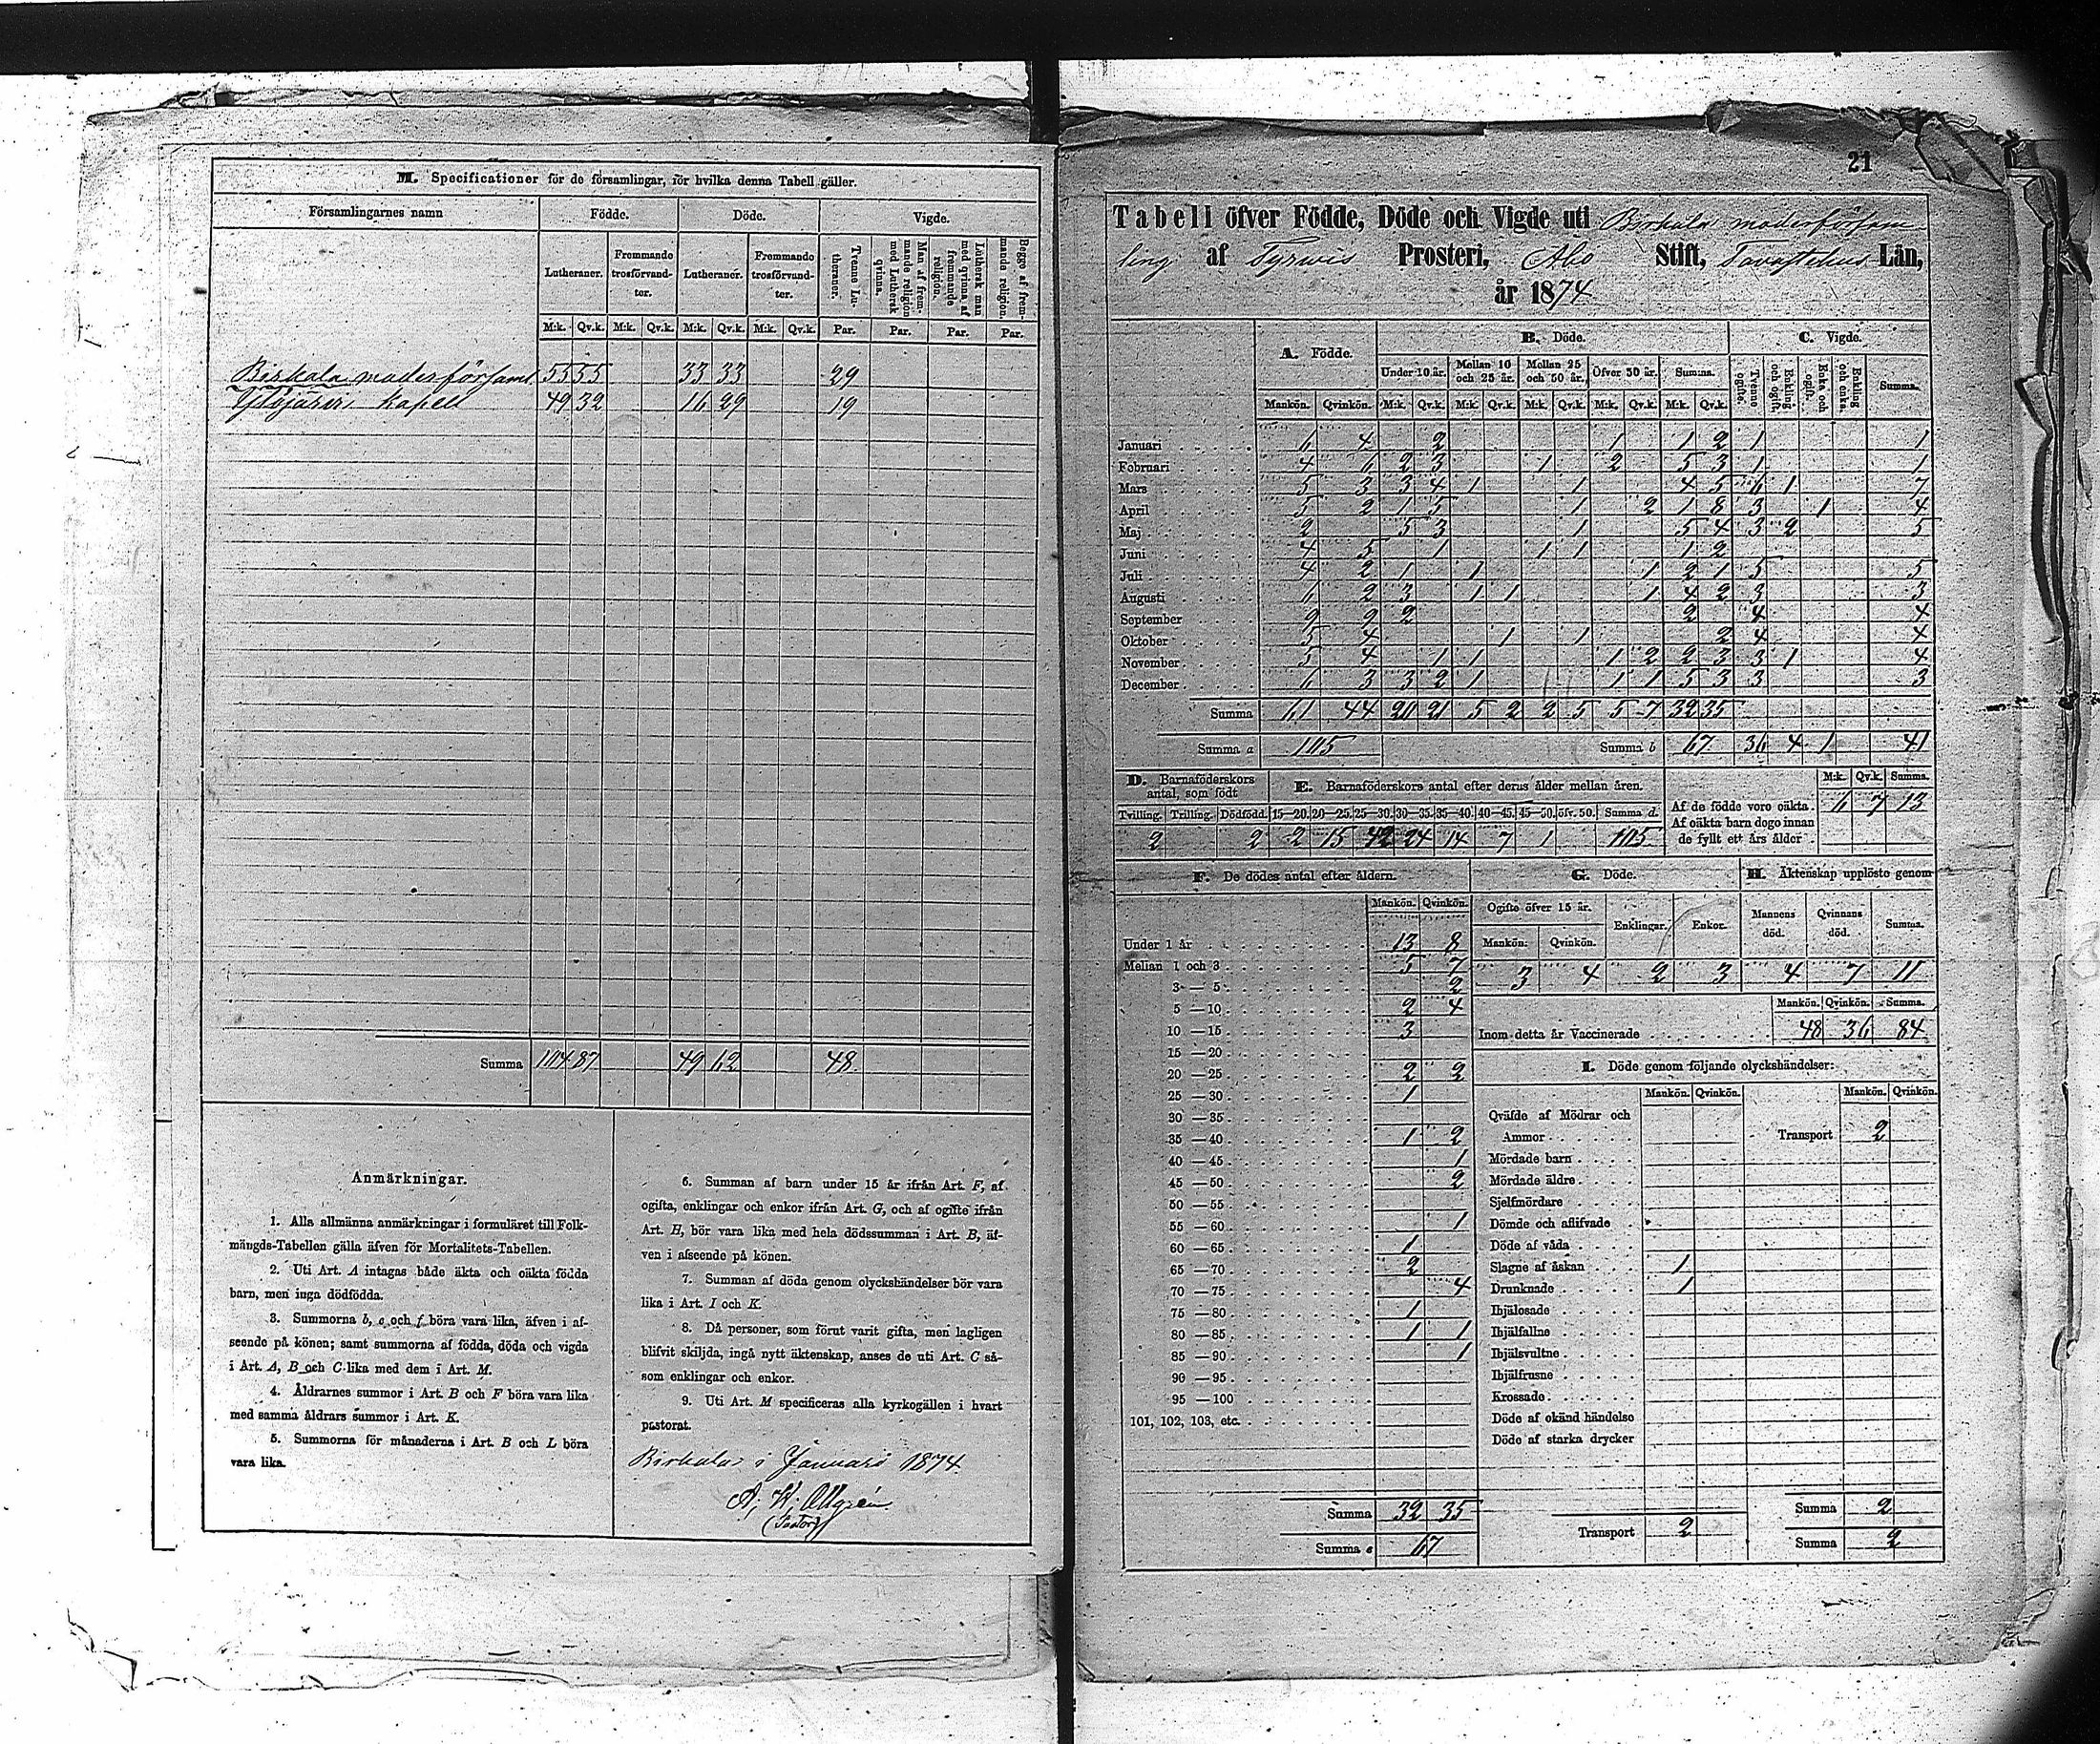 M. Specificationer för de församlingar, för hvilka denna Tabell gäller.
Församlingarnes namn Födde. Döde. Vigde.
Lutheraner. Fremmande trosförvandter. Lutheraner. Fremmande trosförvandter. Tvenne Lutheraner. Man af fremmande religion med Luthersk qvinna. Luthersk man med qvinna af fremmande religion. Begge af fremmande religion.
M:k. Qv.k. M:k. Qv.k. M:k. Qv.k. M:k. Qv.k. Par. Par. Par. Par.
Birkala moderförsaml. 55 55 33 33 29
Ylöjärvi kapell 49 32 16 29 19
Summa 104 87 49 62 48
Anmärkningar.
1. Alla allmänna anmärkningar i formuläret till Folk-
mängds-Tabellen gälla äfven för Mortalitets-Tabellen.
2. Uti Art. A intagas både äkta och oäkta födda
barn, men inga dödfödda.
3. Summorna b, e och f böra vara lika, äfven i af-
seende på könen; samt summorna af födda, döda och vigda
i Art. A, B och C lika med dem i Art. M.
4. Åldrarnes summor i Art. B och F böra vara lika
med samma åldrars summor i Art. K.
5. Summorna för månaderna i Art. B och L böra
vara lika.
6. Summan af barn under 15 år ifrån Art. F, af
ogifta, enklingar och enkor ifrån Art. G, och af ogifte ifrån
Art. H, bör vara lika med hela dödssumman i Art. B, äf-
ven i afseende på könen.
7. Summan af döda genom olyckshändelser bör vara
lika i Art. I och K.
8. Då personer, som förut varit gifta, men lagligen
blifvit skiljda, ingå nytt äktenskap, anses de uti Art. C så-
som enklingar och enkor.
9. Uti Art. M specificeras alla kyrkogällen i hvart
pastorat.
Birkala i Januari 1874.
A. W. Ollgrén
(Pastor)
21
Tabell öfver Födde, Döde och Vigde uti Birkala moderförsam
ling af Tyrwis Prosteri, Åbo Stift, Tavastehus Län,
år 1874
A. Födde. B. Döde. C. Vigde.
Under 10 år. Mellan 10 och 25 år. Mellan 25 och 50 år. Öfver 50 år. Summa. Tvenne ogifte. Enkling och ogift. Enka och ogift. Enkling och enka. Summa.
Mankön. Qvinkön. M:k. Qv.k. M:k. Qv.k. M:k. Qv.k. M:k. Qv.k. M:k. Qv.k.
Januari 6 4 2 1 1 2 1 1
Februari 4 6 2 3 1 2 5 3 1 1
Mars 5 3 3 4 1 1 4 5 6 1 7
April 5 2 1 5 1 2 1 8 3 1 4
Maj 2 5 3 1 5 4 3 2 5
Juni 4 5 1 1 1 1 2
Juli 4 2 1 1 1 2 1 5 5
Augusti 6 2 3 1 1 1 4 2 3 3
September 9 9 2 2 4 4
Oktober 5 4 1 1 2 4 4
November 5 4 1 1 1 2 2 3 3 1 4
December 6 3 3 2 1 1 1 5 3 3 3
Summa 61 44 20 21 5 2 2 5 5 7 32 35
Summa a 105 Summa b 67 36 4 1 41
D. Barnaföderskors antal, som födt E. Barnaföderskors antal efter deras ålder mellan åren. M:k. Qv.k. Summa.
Tvilling. Trilling. Dödfödd. 15—20. 20—25. 25—30. 30—35. 35—40. 40—45. 45—50. öfv. 50. Summa d.
2 2 2 15 42 24 14 7 1 105
Af de födde voro oäkta 6 7 13
Af oäkta barn dogo innan
de fyllt ett års ålder
F. De dödes antal efter åldern.
Mankön. Qvinkön.
Under 1 år 13 8
Mellan 1 och 3 5 7
3 — 5 2
5 — 10 2 4
10 — 15 3
15 — 20
20 — 25 2 2
25 — 30 1
30 — 35
35 — 40 1 2
40 — 45 1
45 — 50 2
50 — 55
55 — 60 1
60 — 65 1
65 — 70 2
70 — 75 4
75 — 80 1
80 — 85 1 1
85 — 90 1
90 — 95
95 — 100
101, 102, 103, etc.
Summa 32 35
Summa e 67
G. Döde. H. Äktenskap upplösta genom
Ogifte öfver 15 år. Enklingar. Enkor. Mannens död. Qvinnans död. Summa.
Mankön. Qvinkön.
3 4 2 3 4 7 11
Mankön. Qvinkön. Summa.
Inom detta år Vaccinerade 48 36 84
I. Döde genom följande olyckshändelser:
Mankön. Qvinkön. Mankön. Qvinkön.
Qväfde af Mödrar och
Ammor Transport 2
Mördade barn
Mördade äldre
Sjelfmördare
Dömde och aflifvade
Döde af våda
Slagne af åskan 1
Drunknade 1
Ihjälosade
Ihjälfallne
Ihjälsvultne
Ihjälfrusne
Krossade
Döde af okänd händelse
Döde af starka drycker
Transport 2
Summa 2
Summa 2